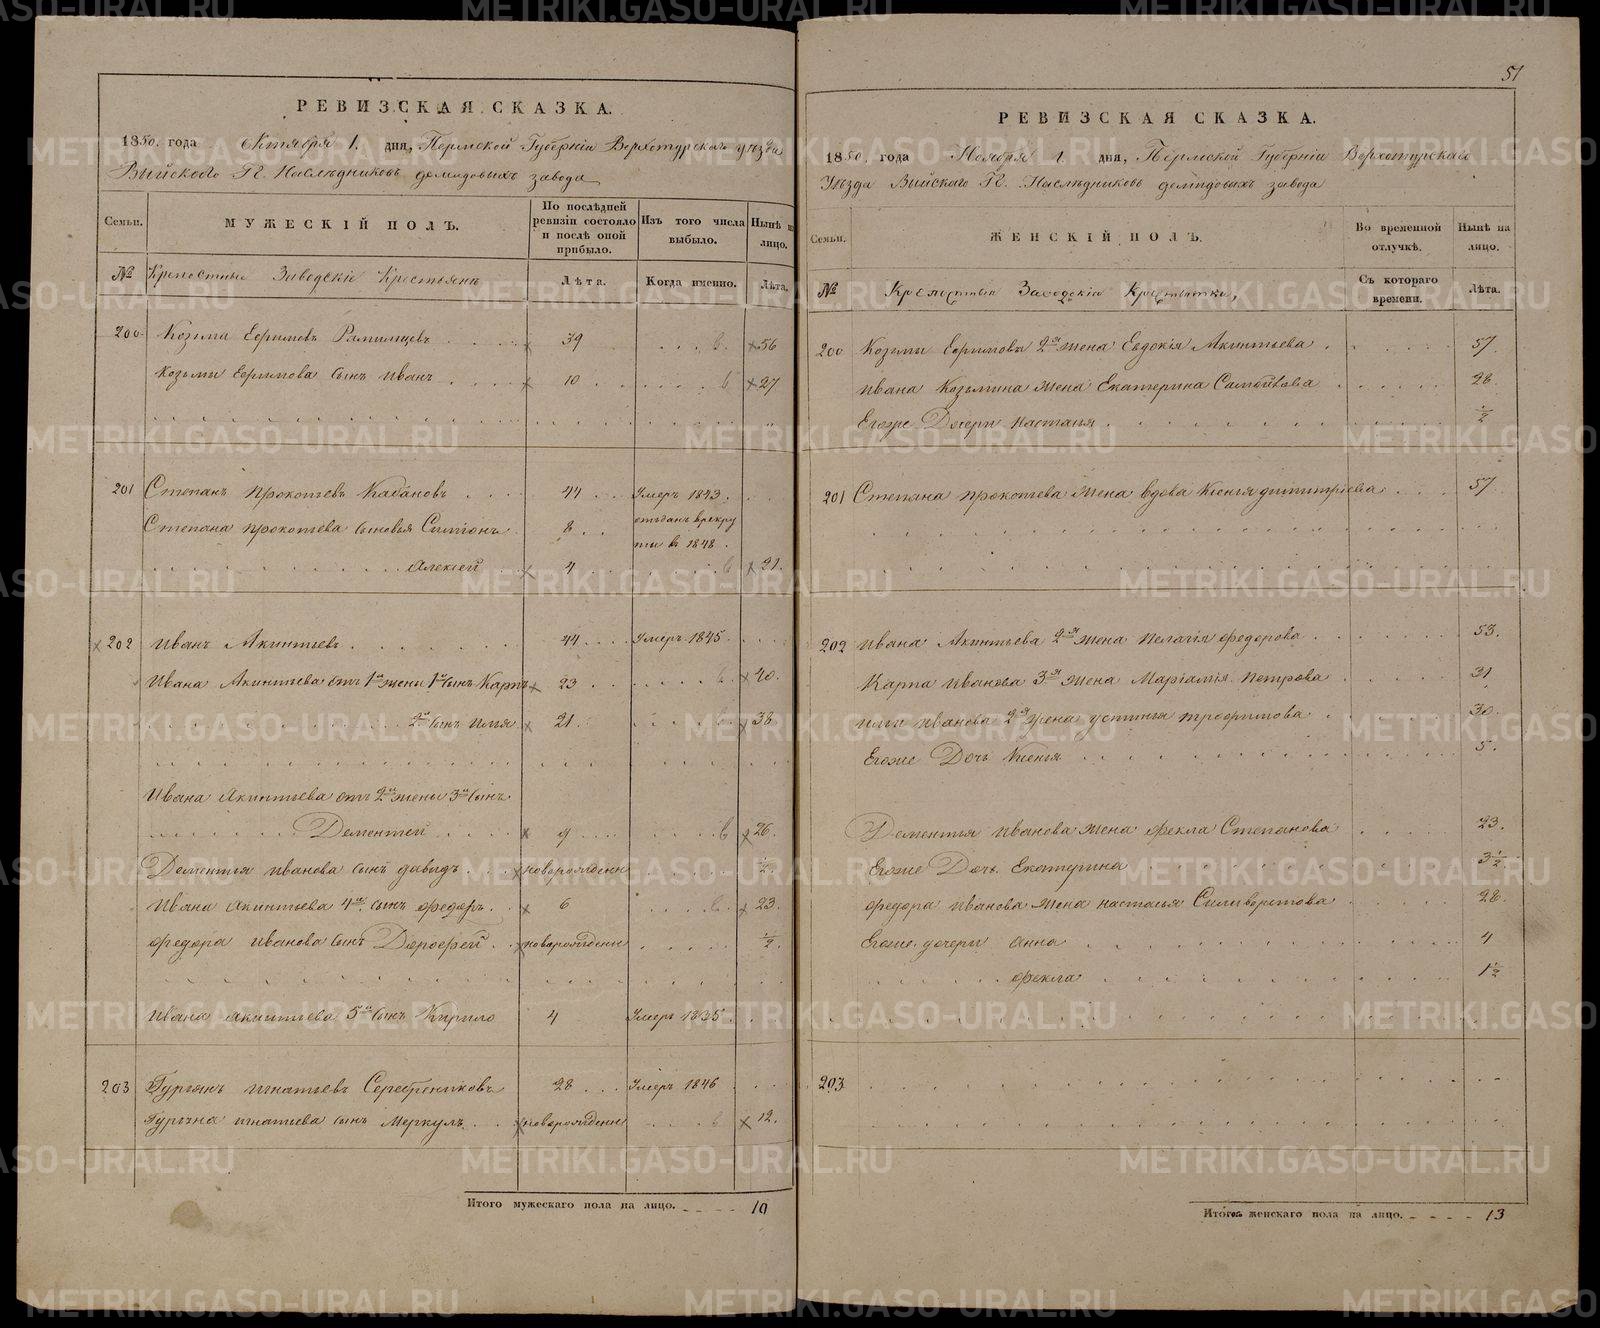 РЕВИЗСКАЯ СКАЗКА.
1850. года Октября 1. дня, Пермской Губерніи Верхотурскаго уезда
Выйскаго Гг. Наследниковъ демидовыхъ завода
Семьи.
МУЖЕСКІЙ ПОЛЪ.
По последней ревизіи состояло и после оной прибыло.
Изъ того числа выбыло.
Ныне на лицо.
№ Крепостные Заводскіе Крестьяне
Лета.
Когда именно.
Лета.
200 Козьма Ефимовъ 39 в 56
Козьмы Ефимова сынъ Иванъ 10 в 27
201 Степанъ Прокопьевъ Кабановъ 44 Умеръ 1843.
Степана Прокопьева сыновья Симіонъ 8 отданъ врекру
ты в 1848.
Алексей 4 в 21.
202 Иванъ Акинтьевъ 44 Умеръ 1845.
Ивана Акинтьева отъ 1й жены 1й сынъ Карпъ 23 в 40.
2й сынъ Илья 21. в 38
Ивана Акинтьева отъ 2й жены 3й сынъ
Дементей 9 в 26.
Дементья Иванова сынъ давидъ новорожденн ½
Ивана Акинтьева 4й сынъ Федоръ 6 в 23.
Федора Иванова сынъ Дорофей новорожденн ½.
Ивана Акинтьева 5й сынъ Кирило 4 Умеръ 1835.
203 Гурьянъ Игнатьевъ Серебениковъ 28 Умеръ 1846
Гурьяна Игнатьева сынъ Меркулъ новорожденн в 12.
Итого мужескаго пола на лицо. 10
51
РЕВИЗСКАЯ СКАЗКА.
1850. года Ноября 1. дня, Пермской Губерніи Верхотурскаго
Уезда Выйскаго Гг. Наследниковъ демидовыхъ завода
Семьи.
ЖЕНСКІЙ ПОЛЪ.
Во временной отлучке.
Ныне на лицо.
№ Крепостныя Заводскія Крестьянки,
Съ котораго времени.
Лета.
200 Козьмы Ефимова 2я жена Евдокія Акинтьева 57
Ивана Козьмина жена Екатерина 28
Егоже Дочери Настасья ½
201 Степана Прокопьева жена вдова Ксенья димитріева 57
202 Ивана Акинтьева 2я жена Пелагія Федорова 53.
Карпа Иванова 3я жена Маріамія Петрова 31
Ильи Иванова 2я жена Устинья Трофимова 30.
Егоже Дочь Ксенья 5.
Дементья Иванова жена Фекла Степанова 23.
Егоже Дочь Екатерина 3½
Федора Иванова жена Настасья Силиверстова 28.
Егоже дочери Анна 4
Фекла 1½
203
Итого женскаго пола на лицо. 13
METRIKI.GASO-URAL.RU